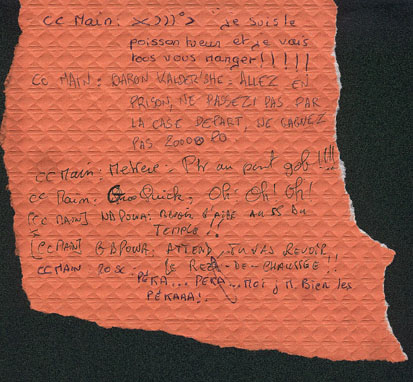 CC Main: ><)))°> "je suis le
poisson tueur et je vais
tous vous manger!!!!!
CC MAIN: BARON KALDER'SHE: ALLEZ EN
PRISON, NE PASSEZ PAS PAR
LA CASE DEPART, NE GAGNEZ
PAS 20000 PO
CC Main: : Ptr au pont gob !!!!
CC Main: Quick, Oh! Oh! Oh!
[CC MAIN] : D'AIDE AU SS DU
TEMPLE !!
[CC MAIN] : ATTEND, TU VAS REVOIR
CC MAIN LE REZ-DE-CHAUSSÉE !!
PEKA... PEKA... MOI J'M BIEN LES
PÉKAAA!